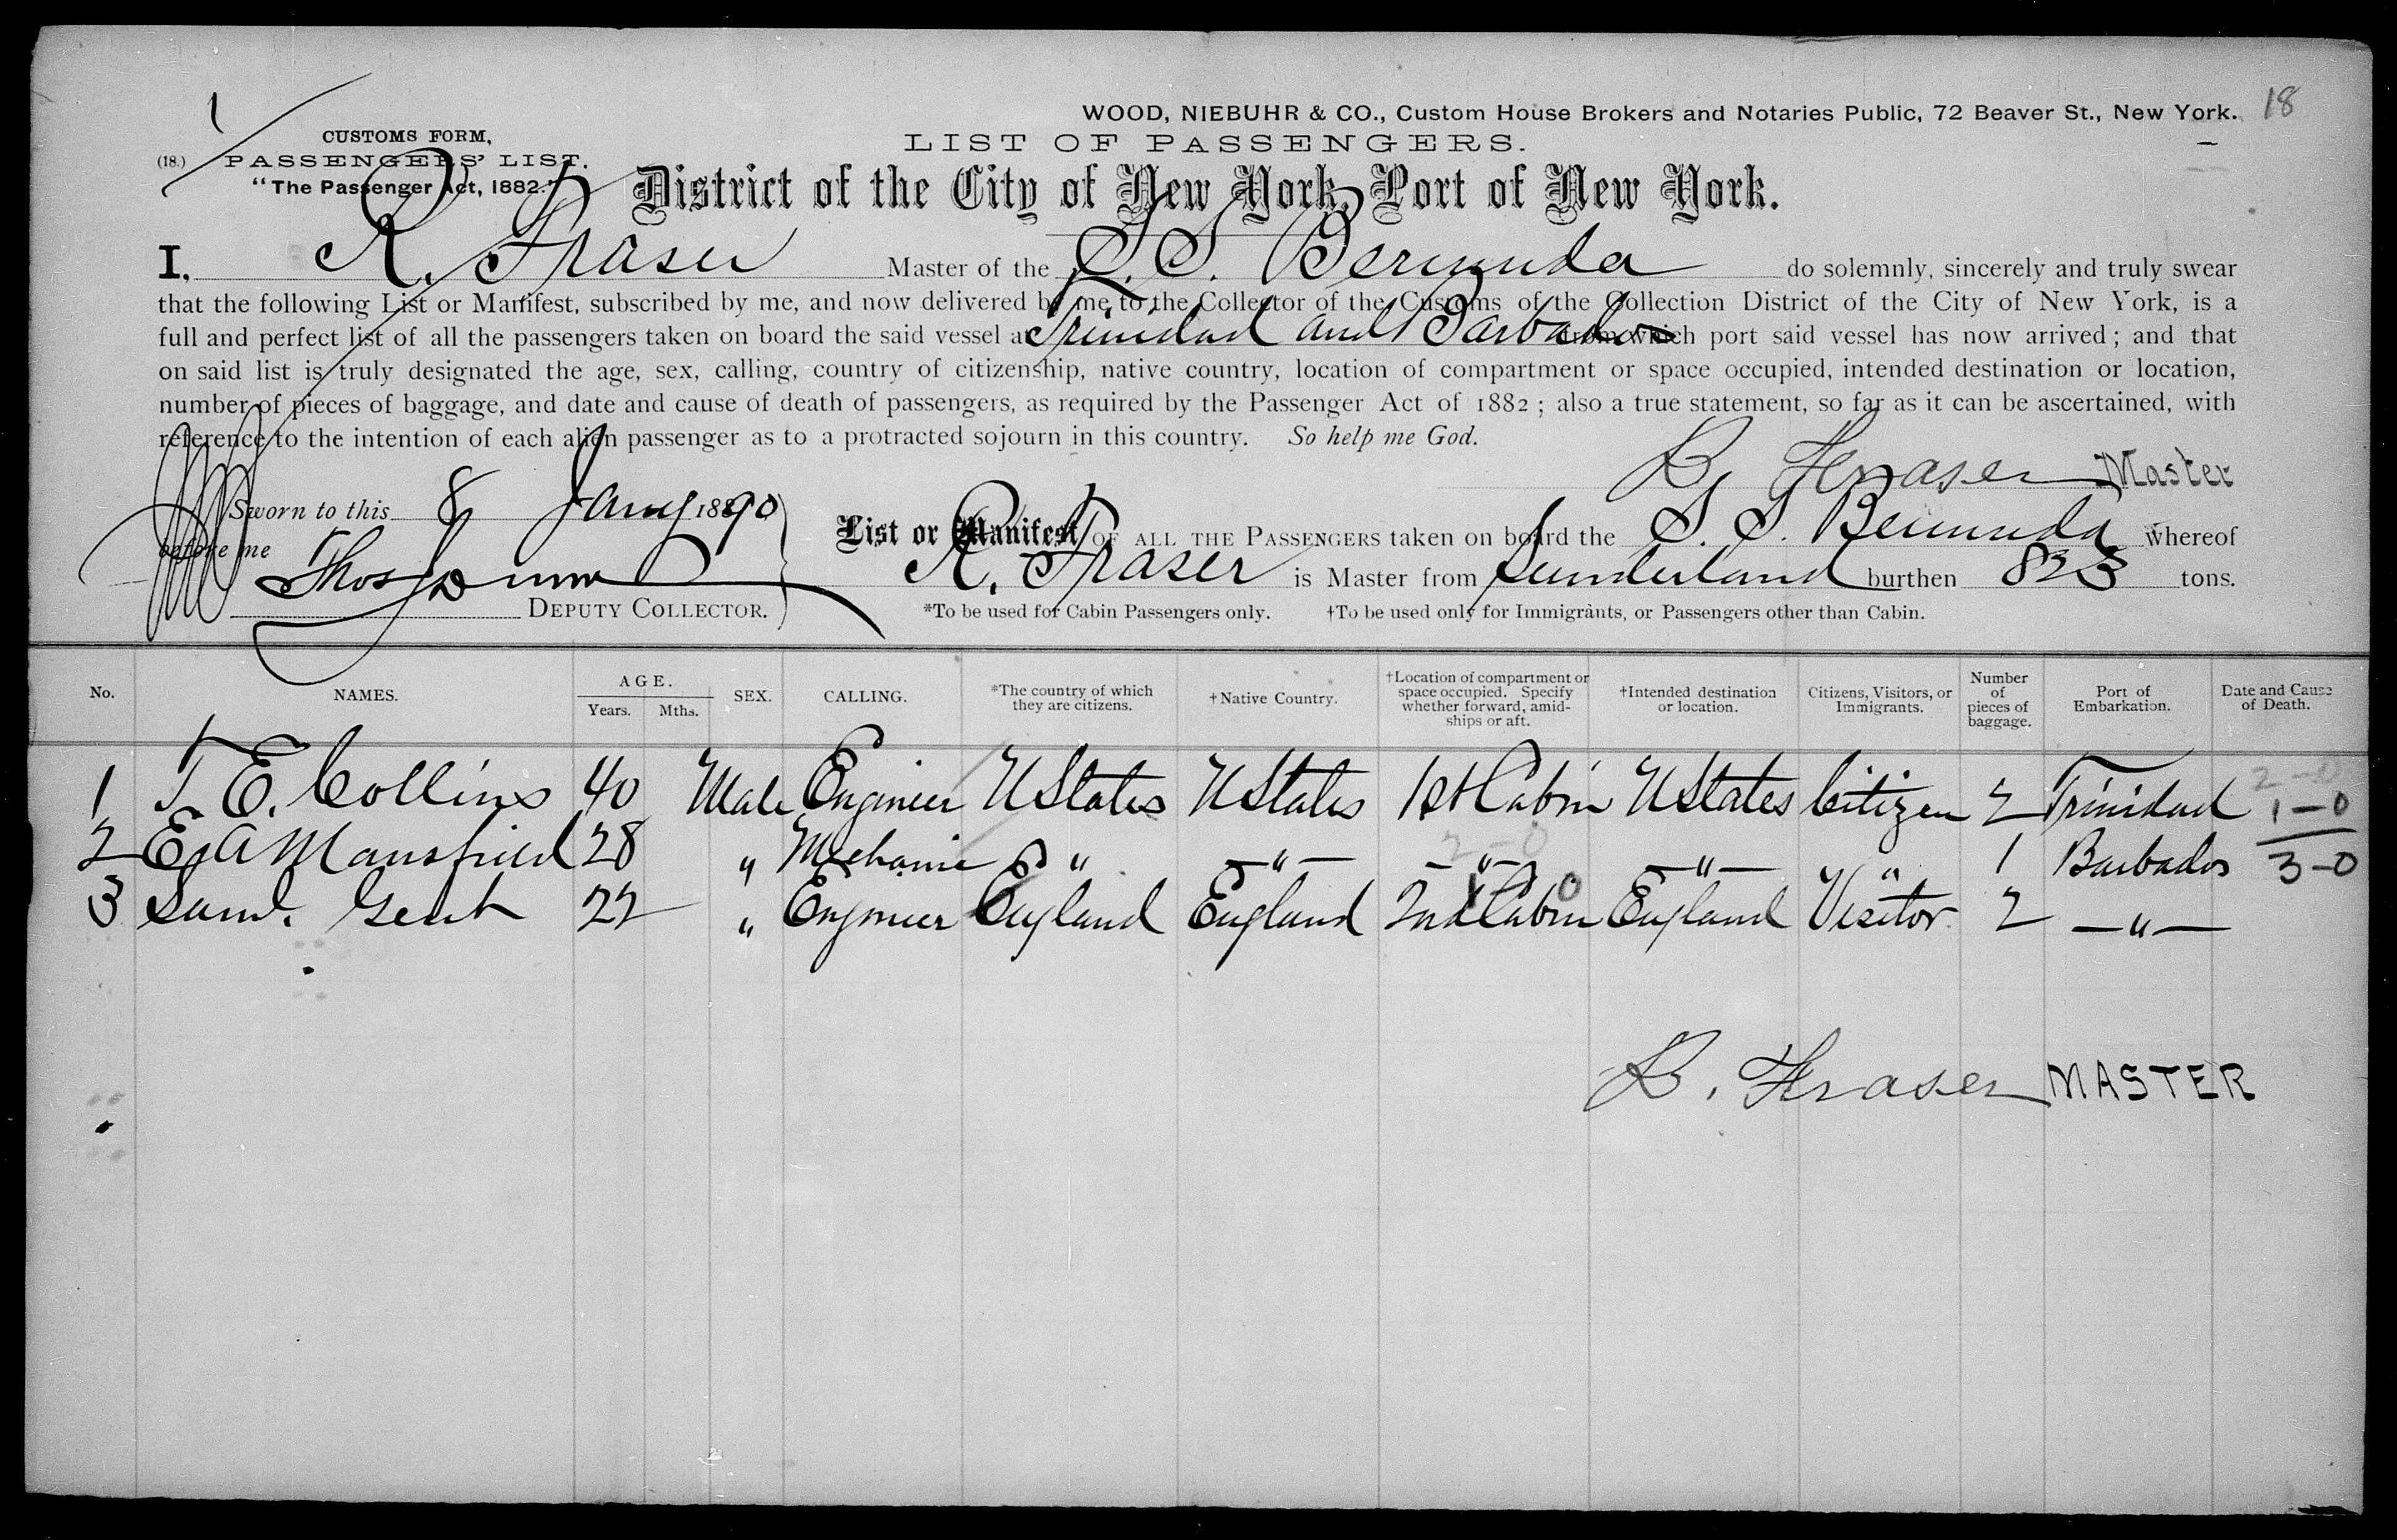 WOOD, NIEBUHR & CO., Custom House Brokers and Notaries Public, 72 Beaver St., New York. 18
1
CUSTOMS FORM,
LIST OF PASSENGERS.
(18.) PASSENGERS' LIST.
"The Passenger Act, 1882."
District of the City of New York, Port of New York.
I, R. Fraser Master of the S.S. Bermuda do solemnly, sincerely and truly swear
that the following List or Manifest, subscribed by me, and now delivered by me to the Collector of the Customs of the Collection District of the City of New York, is a
full and perfect list of all the passengers taken on board the said vessel at Trinidad and Barbados from which port said vessel has now arrived; and that
on said list is truly designated the age, sex, calling, country of citizenship, native country, location of compartment or space occupied, intended destination or location,
number of pieces of baggage, and date and cause of death of passengers, as required by the Passenger Act of 1882; also a true statement, so far as it can be ascertained, with
reference to the intention of each alien passenger as to a protracted sojourn in this country. So help me God.
R. Fraser Master
Sworn to this 8 Jany 1890
before me
List or Manifest OF ALL THE PASSENGERS taken on board the S. S. Bermuda whereof
Thos Dunn
R. Fraser is Master from Sunderland burthen 823 tons.
DEPUTY COLLECTOR.
*To be used for Cabin Passengers only. †To be used only for Immigrants, or Passengers other than Cabin.
No. NAMES. AGE. Years. Mths. SEX. CALLING. *The country of which they are citizens. †Native Country. †Location of compartment or space occupied. Specify whether forward, amidships or aft. †Intended destination or location. Citizens, Visitors, or Immigrants. Number of pieces of baggage. Port of Embarkation. Date and Cause of Death.
1 T. E. Collins 40 Male Engineer U States U States 1st Cabin U States Citizen 2 Trinidad 2-0
1-0
2 E A Mansfield 28 " Mechanic " —"— —"— —"— " 1 Barbados 3-0
3 Saml. Gent 22 " Engineer England England 2nd Cabin England Visitor 2 —"—
R. Fraser MASTER